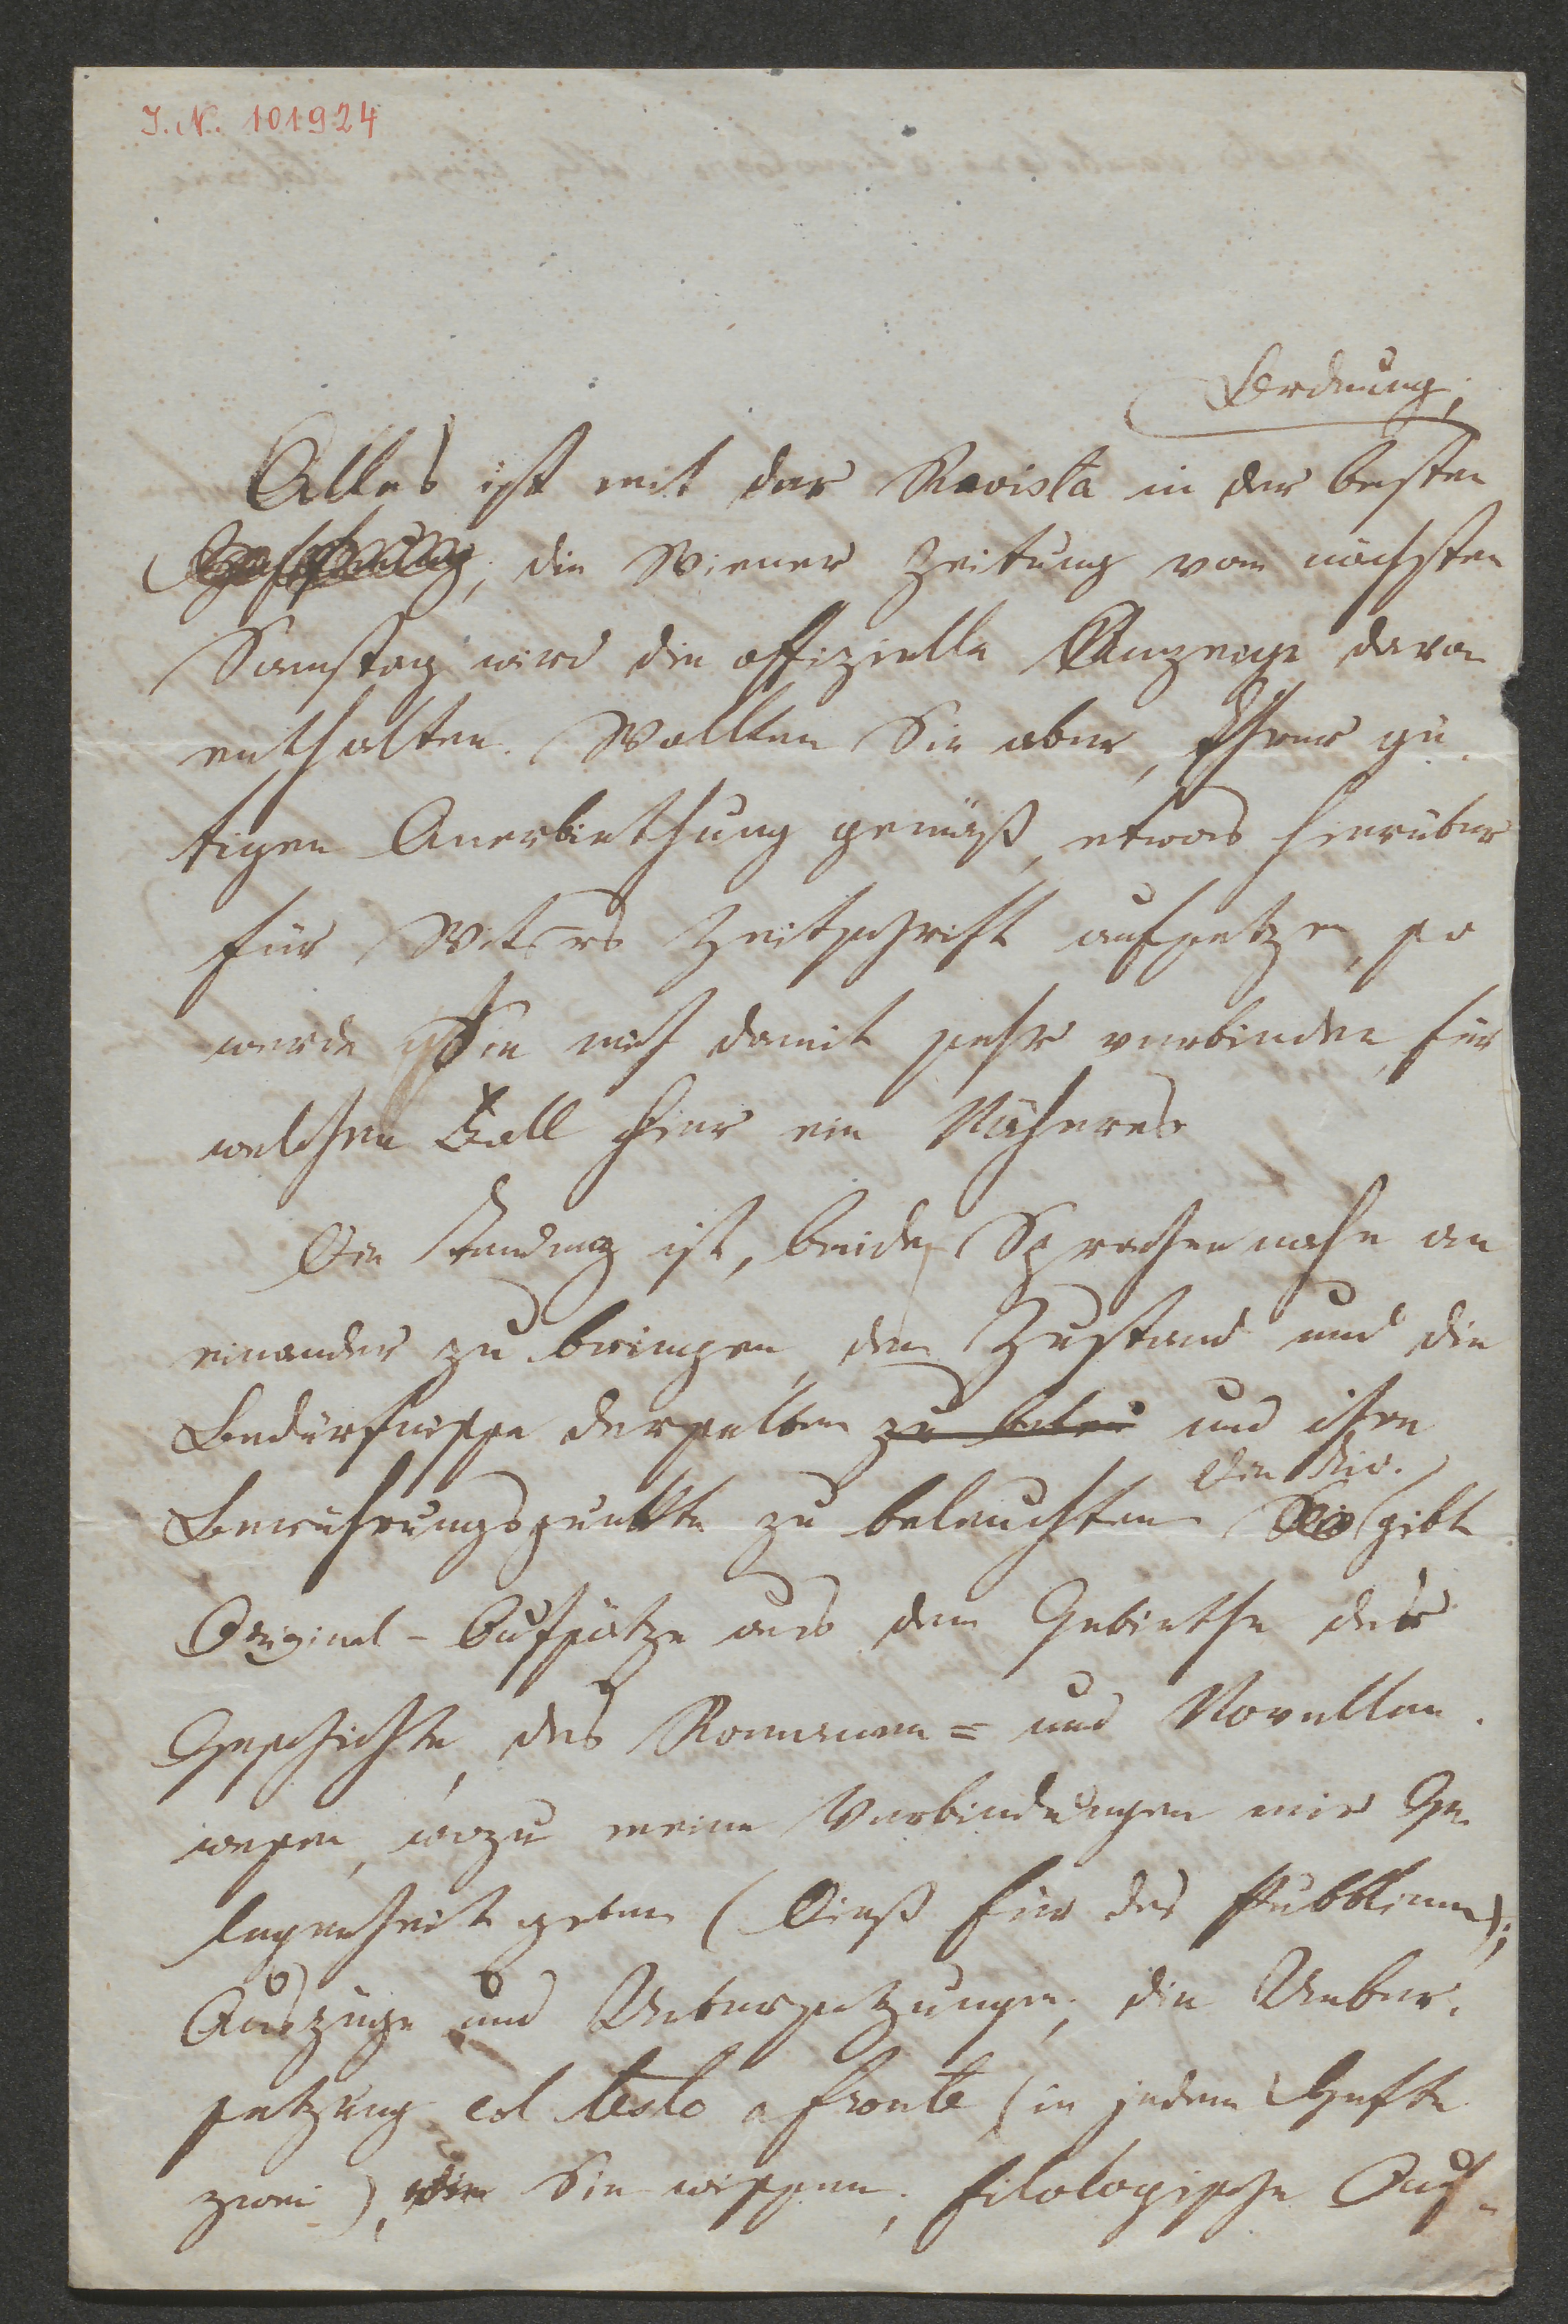 J. N. 101924
Ordnung;
Alles ist mit der Revista in der besten
die Wiener Zeitung vom nächsten
Samstag wird die offizielle Anzeige davon
enthalten. Wollten Sie aber, Ihrer gü-
tigen Anerbiethung gemäß, etwas hierüber
für Zeitschrift aufsetzen, so
werden Sie mich damit sehr verbinden, für
welchen Fall hier ein Näheres
Die Tendenz ist, beide Sprachen nahe an
einander zu bringen, den Zustand und die
Bedürfnisse derselben und ihre
Die Riv.
Berührungspunkte zu beleuchten gibt
Original-Aufsätze aus dem Gebiethe der
Geschichte, des Romanen= und Novellen-
wesen, wozu meine Verbindungen mir Ge-
legenheit geben (Dieß für das Publikum);
Auszüge und Uebersetzungen, die Ueber-
setzung col testo a fronte (in jedem Hefte
zwei), Sie wissen, filologische Auf-